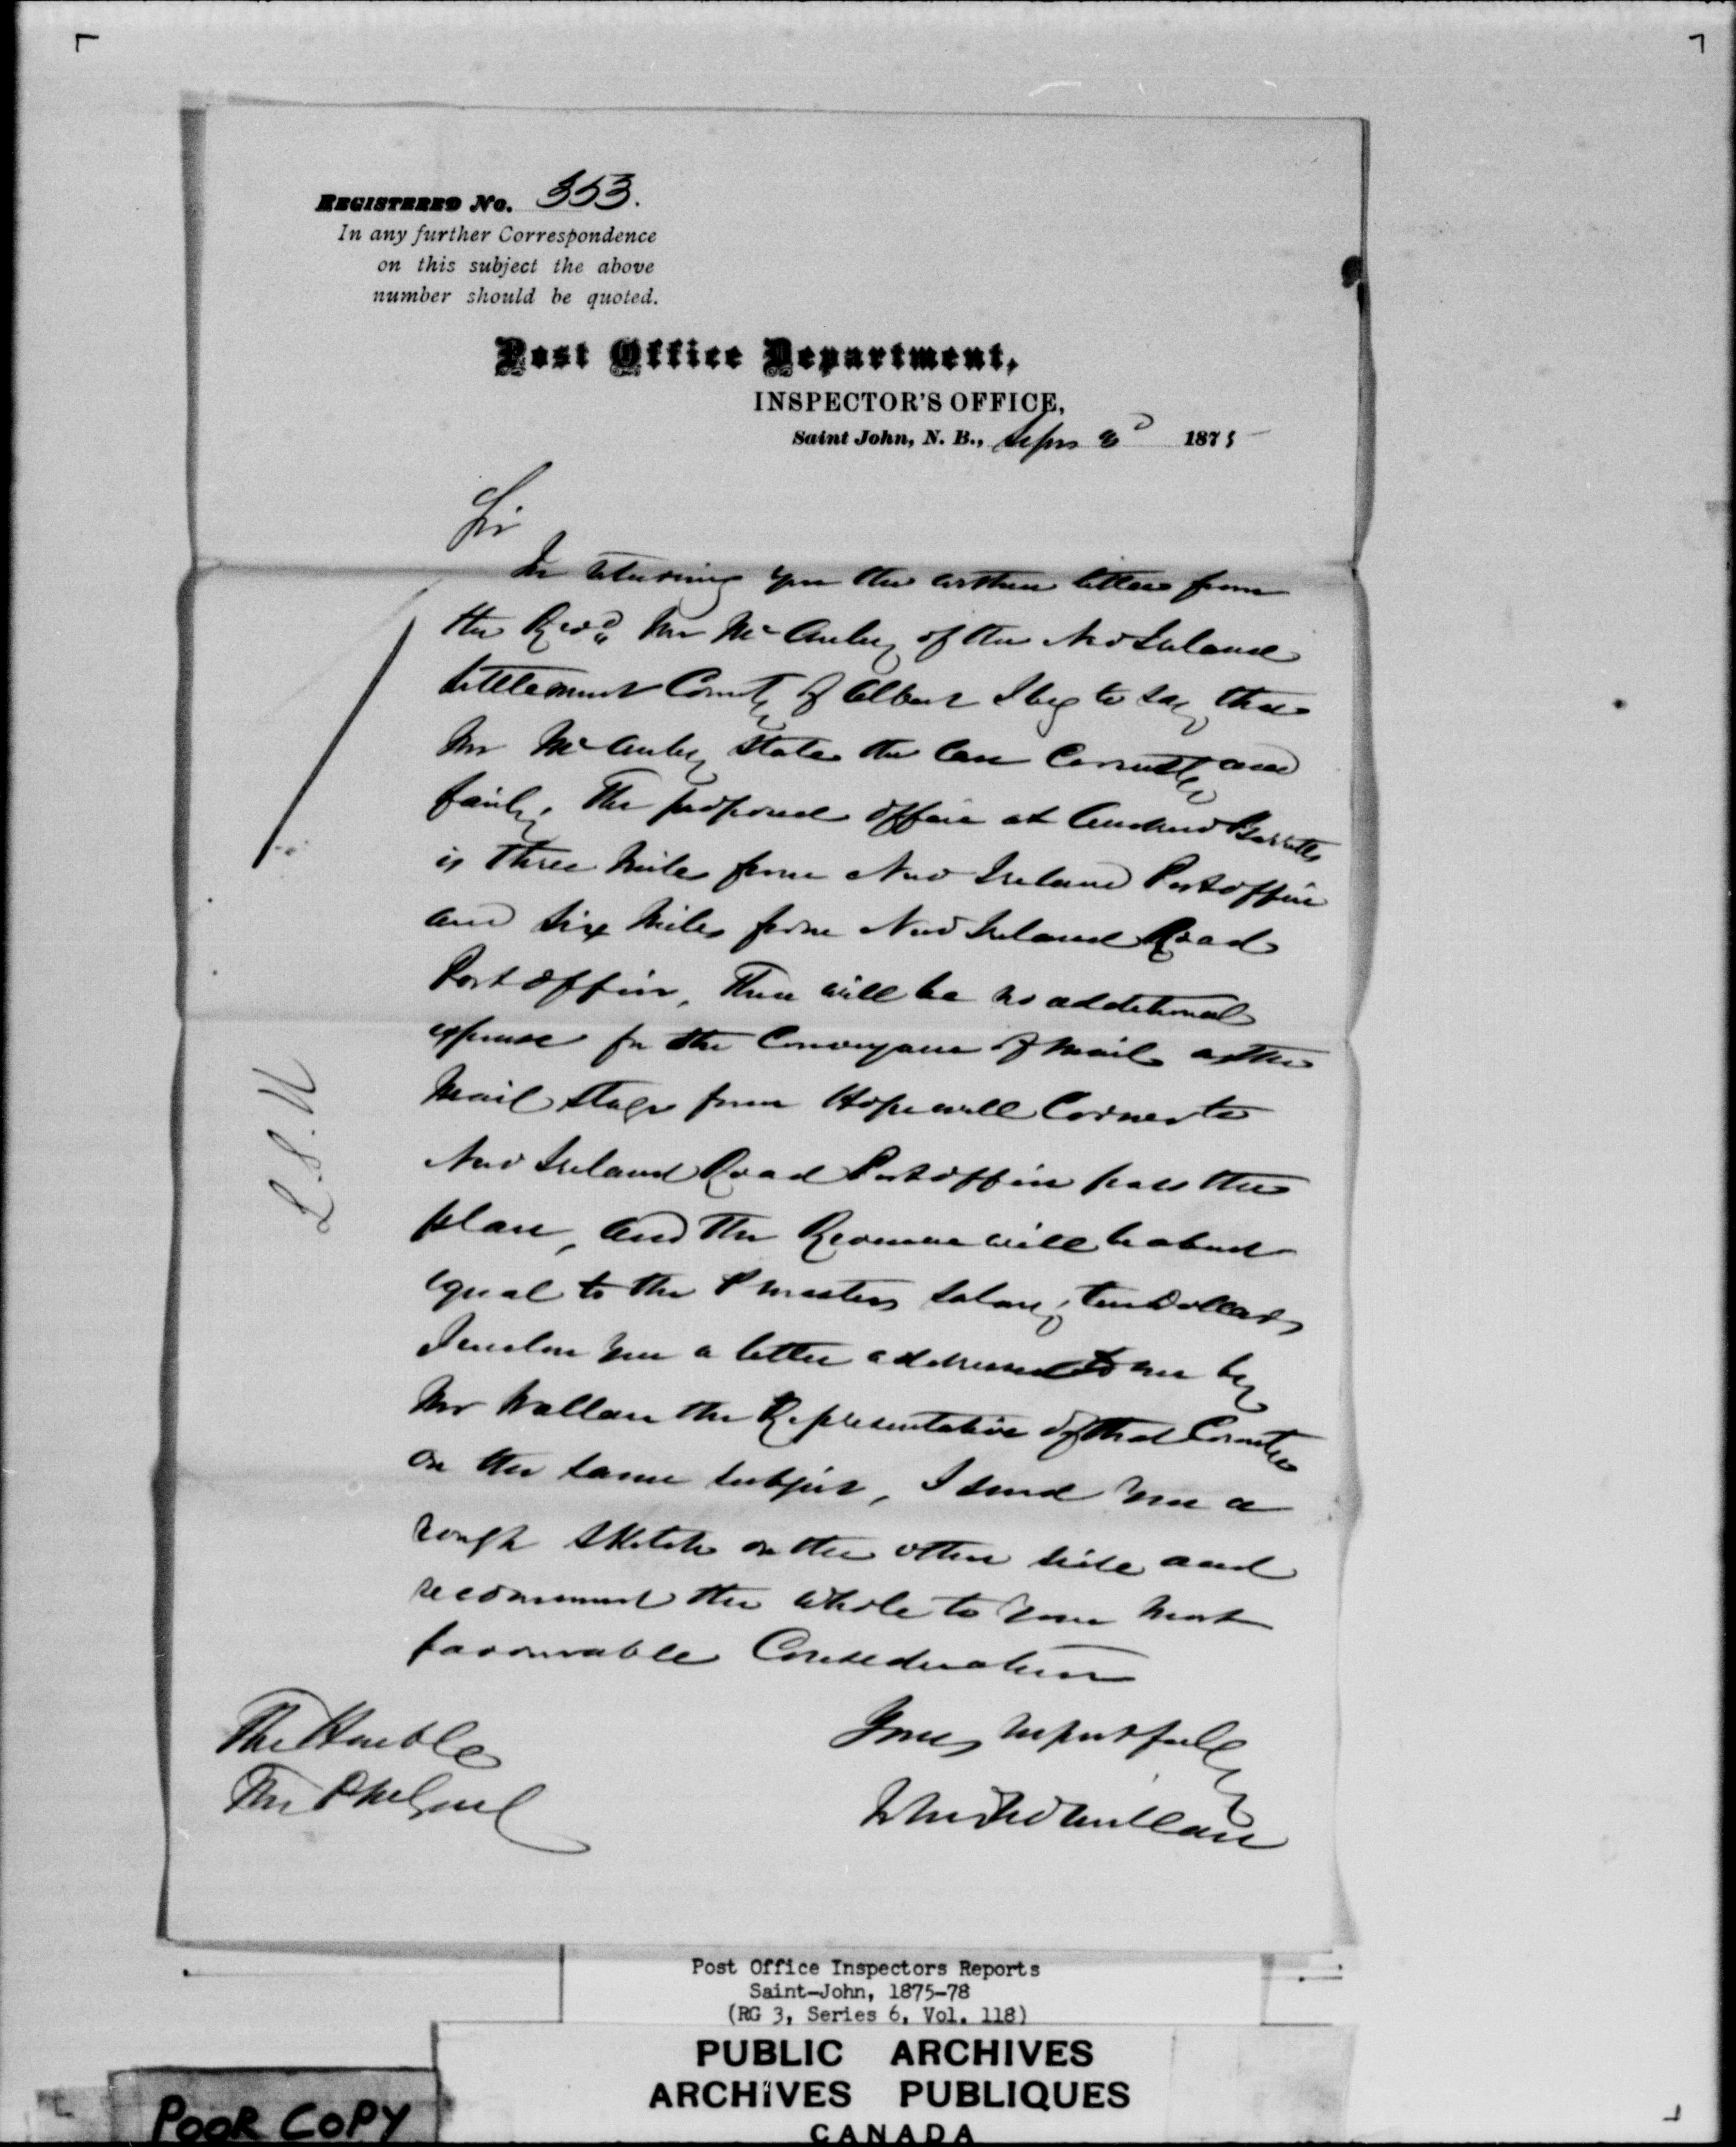 REGISTERED No. 353.
In any further Correspondence
on this subject the above
number should be quoted.
Post Office Department,
INSPECTOR'S OFFICE,
Saint John, N. B., 1875
Sir
In returning you the within letter from
the Revd. Mr McAuley of the New Ireland
Settlement County of Albert I beg to say that
Mr McAuley states the case correctly and
fairly. The proposed office at Andrew Barretts
is three miles from New Ireland Post office
and six miles from New Ireland Road
Post office, There will be no additional
expense for the Conveyance of Mails as the
Mail stage from Hopewell Corner to
New Ireland Road Post office pass the
place, and the Revenue will be about
equal to the Pmasters Salary, ten Dollars
I enclose you a letter addressed to me by
Mr Wallace the Representative of that County
on the same subject, I send you a
rough sketch on the other side and
recommend the whole to your most
favourable Consideration
Yours respectfully
John McMillan
The Honble
The PMGenl
Post Office Inspectors Reports
Saint-John, 1875-78
(RG 3, Series 6, Vol. 118)
PUBLIC ARCHIVES
ARCHIVES PUBLIQUES
CANADA
POOR COPY